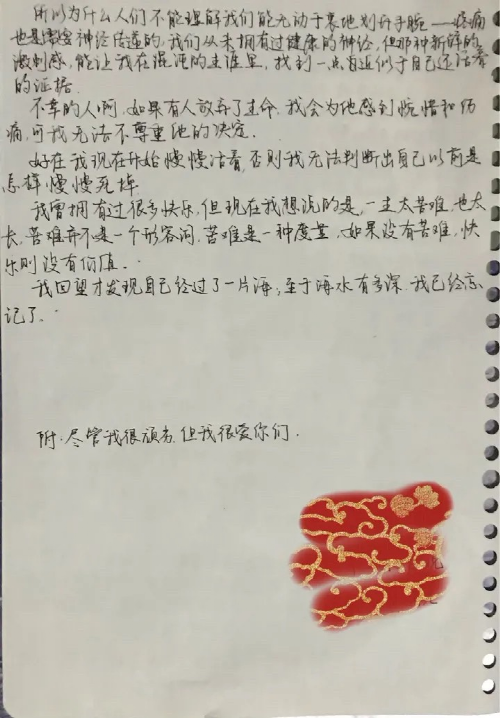 所以为什么人们不能理解我们能无动于衷地划开手腕——疼痛
也是需要神经传递的,我们从未拥有过健康的神经,但那种新鲜的
刺激感,能让我在混沌的生涯里,找到一点有近似于自己还活着
的证据.
不幸的人啊,如果有人放弃了生命,我会为他感到惋惜和伤
痛,可我无法不尊重他的决定.
好在我现在开始慢慢活着,否则我无法判断出自己以前是
怎样慢慢死掉.
我曾拥有过很多快乐,但现在我想说的是,一生太苦难,也太
长,苦难并不是一个形容词,苦难是一种度量,如果没有苦难,快
乐则没有价值.
我回望才发现自己经过了一片海,至于海水有多深,我已经忘
记了.
附:尽管我很颓丧,但我很爱你们.